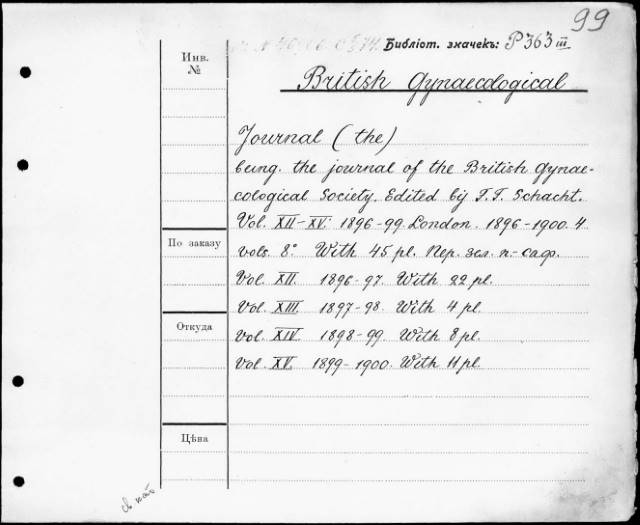 99
Библіот. значекъ: P 363 III
Инв. №
British Gynaecological
Journal (the)
being. the journal of the British Gynae-
cological Society. Edited by F. F. Schacht.
Vol. XII-XV. 1896-99. London. 1896-1900. 4
По заказу
vols. 8° With 45 pl. Пер. зел. п-саф.
Vol. XII. 1896-97. With 22 pl.
Vol. XIII. 1897-98. With 4 pl.
Откуда
Vol. XIV. 1898-99. With 8 pl.
Vol. XV. 1899-1900. With 11 pl.
Цѣна